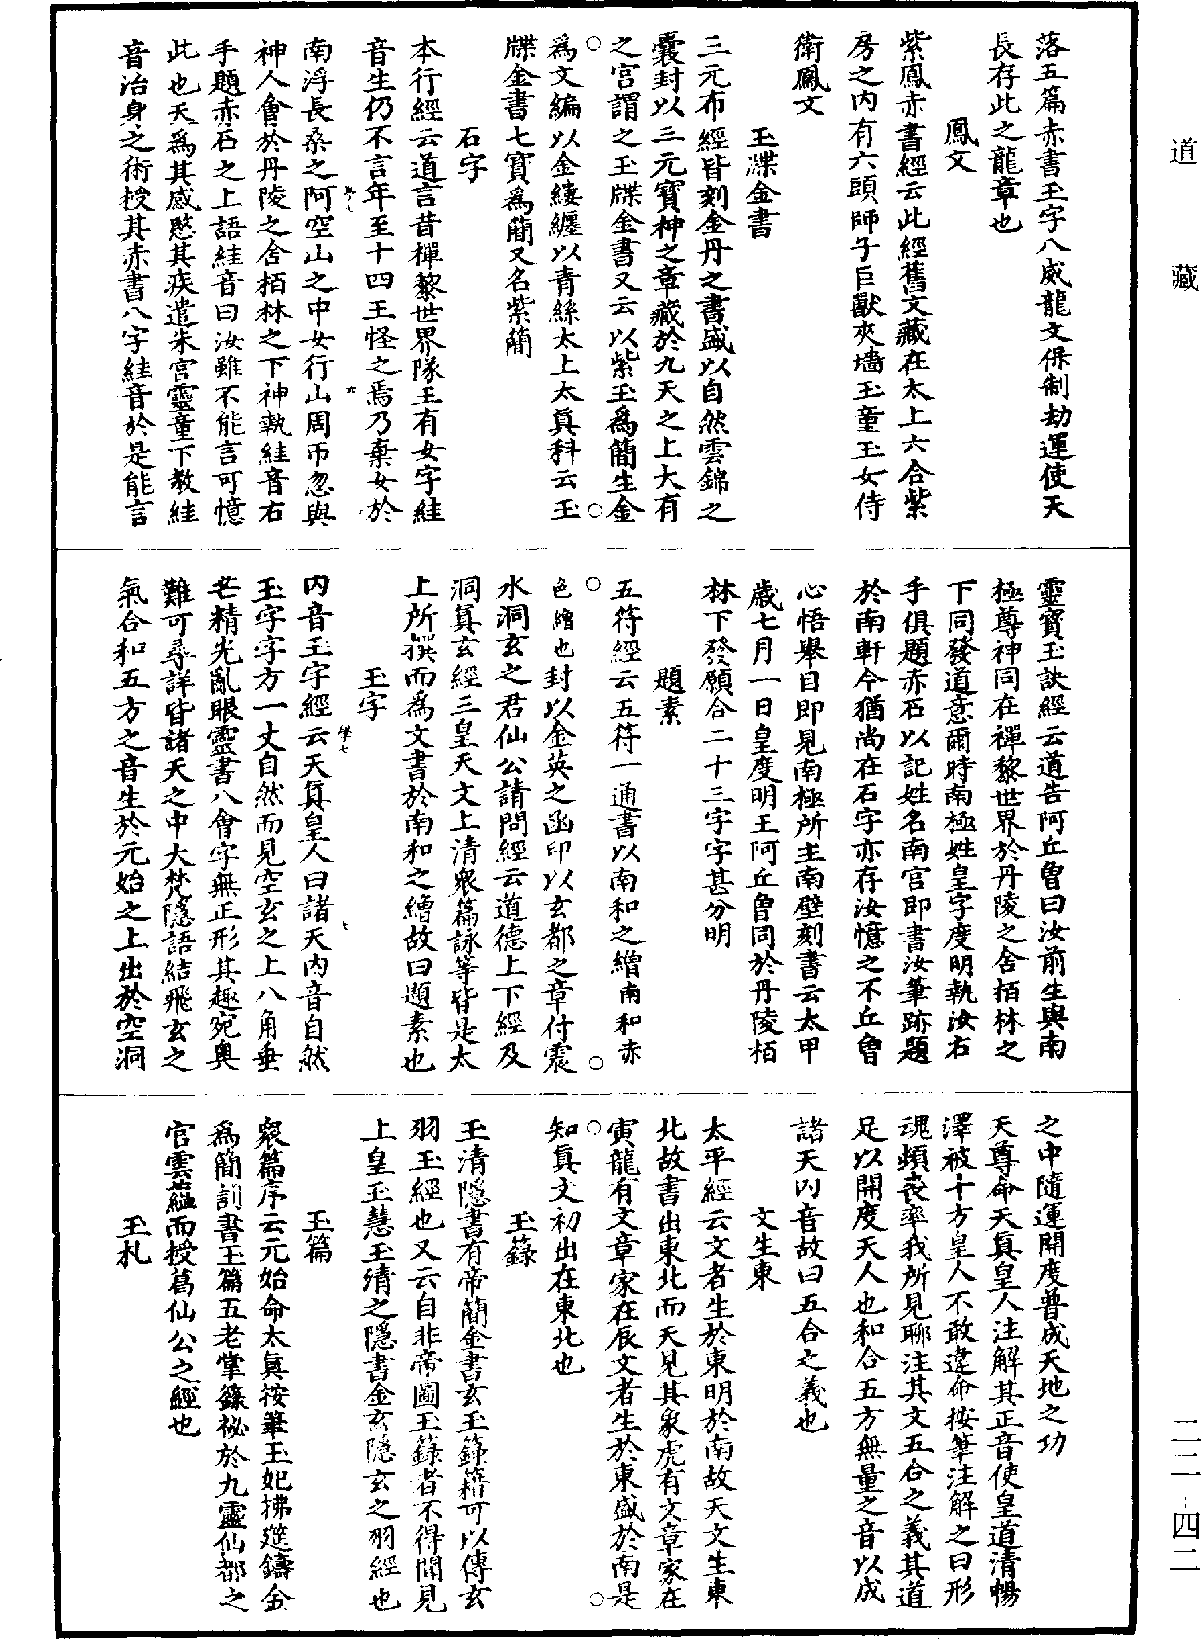 落五篇赤書玉字八威龍文保制劫運使天
長存此之龍章也
鳳文
紫鳳赤書經云此經舊文藏在太上六合紫
房之內有六頭師子巨獸夾墻玉童玉女侍
衛鳳文
玉牒金書
三元布經皆刻金丹之書盛以自然雲錦之
囊封以三元寶神之章藏於九天之上大有
之宮謂之玉牒金書又云以紫玉為簡生金
為文編以金縷纏以青絲太上太真科云玉
牒金書七寶為簡又名紫簡
石字
本行經云道言昔禪黎世界隊王有女字絓
音生仍不言年至十四王怪之焉乃棄女於
南浮長桑之阿空山之中女行山周帀忽與
神人會於丹陵之舍栢林之下神執絓音右
手題赤石之上語絓音曰汝雖不能言可憶
此也天為其感愍其疾遣朱宮靈童下教絓
音治身之術授其赤書八字絓音於是能言
靈寶玉訣經云道告阿丘曾曰汝前生與南
極尊神同在禪黎世界於丹陵之舍栢林之
下同發道意爾時南極姓皇字度明執汝右
手俱題赤石以記姓名南宮即書汝筆跡題
於南軒今猶尚在石字亦存汝憶之不丘曾
心悟舉目即見南極所主南壁刻書云太甲
歲七月一日皇度明王阿丘曾同於丹陵栢
林下發願合二十三字字甚分明
題素
五符經云五符一通書以南和之繒南和赤
色繒也封以金英之函印以玄都之章付震
水洞玄之君仙公請問經云道德上下經及
洞真玄經三皇天文上清眾篇詠等皆是太
上所撰而為文書於南和之繒故曰題素也
玉字
內音玉字經云天真皇人曰諸天內音自然
玉字字方一丈自然而見空玄之上八角垂
芒精光亂眼靈書八會字無正形其趣宛奧
難可尋詳皆諸天之中大梵隱語結飛玄之
氣合和五方之音生於元始之上出於空洞
之中隨運開度普成天地之功
天尊命天真皇人注解其正音使皇道清暢
澤被十方皇人不敢違命按筆注解之曰形
魂頻喪率我所見聊注其文五合之義其道
足以開度天人也和合五方無量之音以成
諸天內音故曰五合之義也
文生東
太平經云文者生於東明於南故天文生東
北故書出東北而天見其象虎有文章家在
寅龍有文章家在辰文者生於東盛於南是
知真文初出在東北也
玉籙
玉清隱書有帝簡金書玄玉籙籍可以傳玄
羽玉經也又云自非帝圖玉籙者不得聞見
上皇玉慧玉清之隱書金玄隱玄之羽經也
玉篇
眾篇序云元始命太真按筆玉妃拂筵鑄金
為簡訓書玉篇五老掌籙祕於九靈仙都之
宮雲蘊而授葛仙公之經也
玉札
道藏
二二-四二